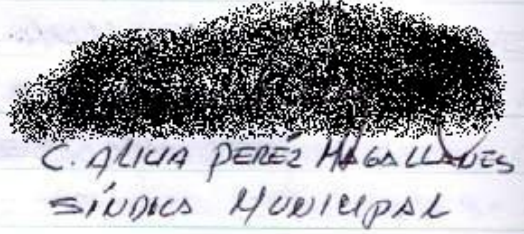 C. ALICIA PEREZ MAGALLANES
SÍNDICA MUNICIPAL